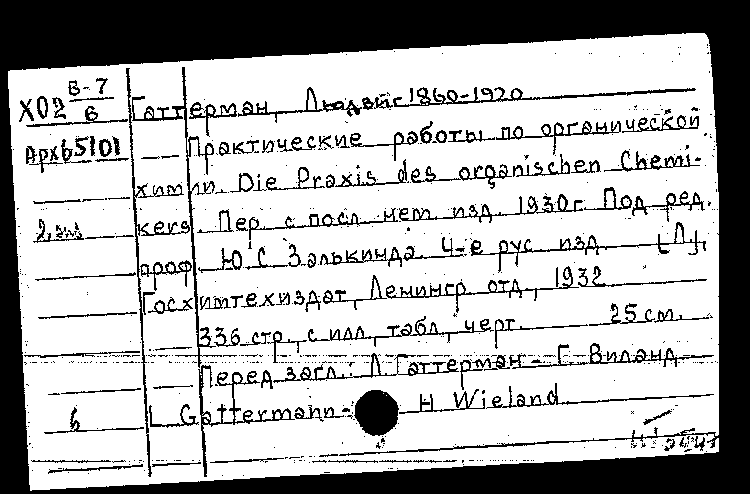 Х02 В-7/6
Гаттерман, Людвиг 1860-1920
Арх65101
Практические работы по органической
химии. Die Praxis des organischen Chemi-
2, экз
kers. Пер. с посл. нем. изд. 1930г. Под ред.
проф. Ю.С. Залькинда. 4-е рус. изд. [Л],
Госхимтехиздат, Ленингр. отд., 1932
336 стр., с илл., табл., черт. 25 см.
Перед загл.: Л. Гаттерман - Г. Виланд
L. Gattermann- H Wieland
б